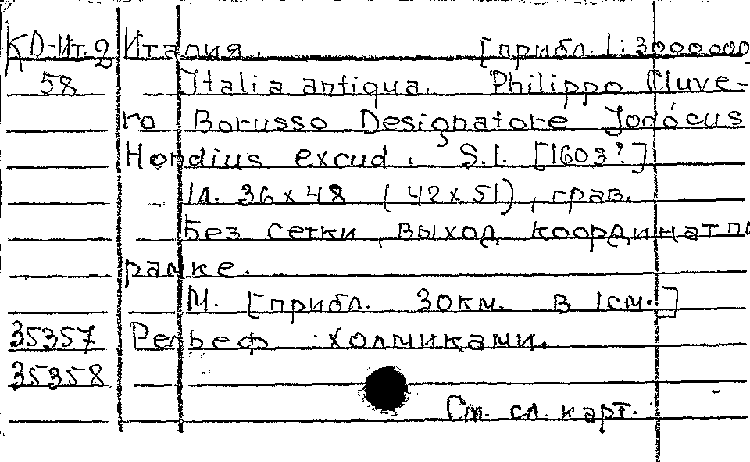 КД-Ит.2 Италия. [прибл. 1:3000000]
58 Italia antiqua. Philippo Cluve-
ro Borusso Designatore Jodócus
Hondius excud. S.l. [1603?]
1л. 36x48 (42x51), грав.
Без сетки, выход координат по
рамке.
М. [прибл. 30км. в 1см.]
35357 Рельеф холмиками.
35358
См. сл. карт.